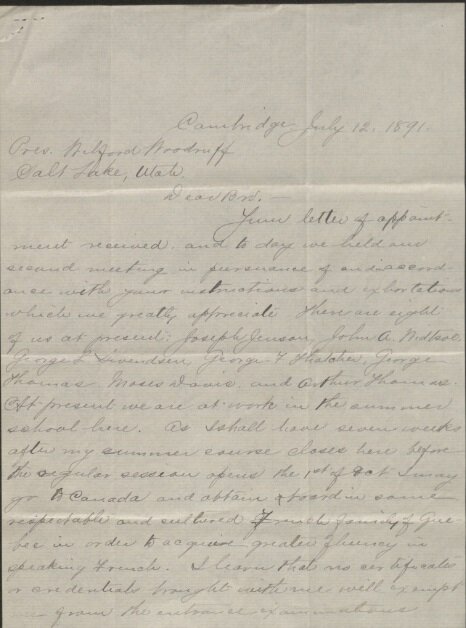 Cambridge July 12, 1891.
Pres. Wilford Woodruff
Salt Lake, Utah
Dear Bro. —
Your letter of appoint-
ment received, and to day we held our
second meeting in pursuance of and accord-
ance with your instructions and exhortations
which we greatly appreciate. There are eight
of us at present: Joseph Jenson, John A. Widtsoe,
George L. Swendsen, George F. Thatcher, George
Thomas, Moses Davis, and Arthur Thomas.
At present we are at work in the summer
school here. As I shall have seven weeks
after my summer course closes here before
the regular session opens the 1st of Oct I may
go to Canada and obtain board in some
respectable and cultured French family of Que-
bec in order to acquire greater fluency in
speaking French. I learn that no certificates
or credentials brought with me will exempt
me from the entrance examinations